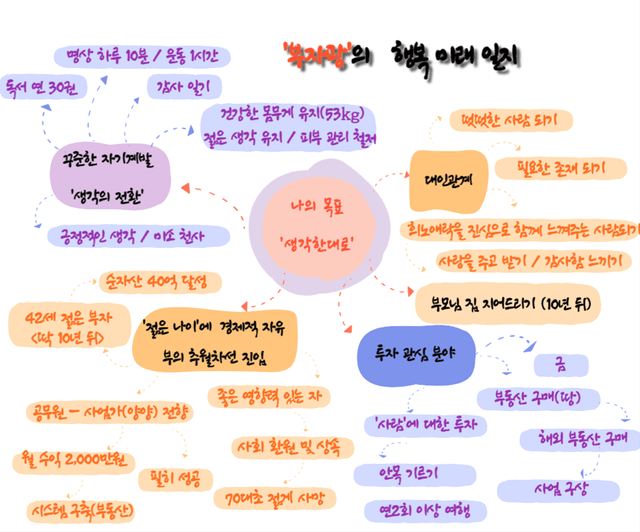 '부자팜'의 행복 미래 일지
명상 하루 10분 / 운동 1시간
독서 연 30권
감사 일기
건강한 몸무게 유지(53kg)
젊은 생각 유지 / 피부 관리 철저
꾸준한 자기계발
'생각의 전환'
긍정적인 생각 / 미소 천사
나의 목표
'생각한대로'
떳떳한 사람 되기
대인관계
필요한 존재 되기
희노애락을 진심으로 함께 느껴주는 사람되기
사랑을 주고 받기 / 감사함 느끼기
부모님 집 지어드리기 (10년 뒤)
순자산 40억 달성
42세 젊은 부자
<딱 10년 뒤>
'젊은 나이'에 경제적 자유
부의 추월차선 진입
공무원 - 사업가(양양) 전향
월 수익 2,000만원
시스템 구축(부동산)
필히 성공
좋은 영향력 있는 자
사회 환원 및 상속
70대초 절게 사망
투자 관심 분야
금
부동산 구매(땅)
해외 부동산 구매
사업 구상
'사람'에 대한 투자
안목 기르기
연2회 이상 여행